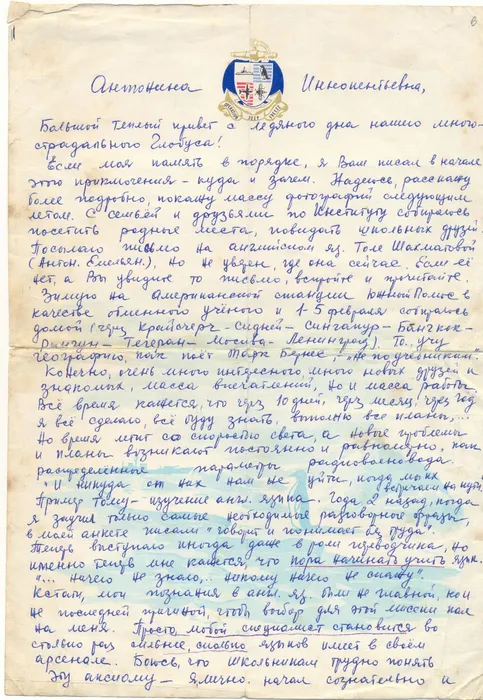 6
Антонина Иннокентьевна,
Большой теплый привет с ледяного дна нашего много-
страдального Глобуса!
Если моя память в порядке, я Вам писал в начале
этого приключения – куда и зачем. Надеюсь, расскажу
более подробно, покажу массу фотографий следующим
летом. С семьей и друзьями по Институту собираюсь
посетить родные места, повидать школьных друзей.
Посылаю письмо на английском яз. Толе Шахматовой
(Антон. Емельян.), но не уверен, где она сейчас. Если её
нет, а Вы увидите то письмо, вскройте и прочитайте.
Зимую на Американской станции Южный Полюс в
качестве обменного учёного и 1-5 февраля собираюсь
домой (через Крайсчерч-Сидней-Сингапур-Бангкок-
Рангун-Тегеран-Москва-Ленинград). То, учу
географию, как поёт Марк Бернес, "не по учебникам".
Конечно, очень много интересного, много новых друзей и
знакомых, масса впечатлений, но и масса работы.
Всё время кажется, что через 10 дней, через месяц, через год
я всё сделаю, всё буду знать, выполню все планы,...
Но время летит со скоростью света, а новые проблемы
и планы возникают постоянно и равномерно, как
распределённые параметры радиоволновода.
"И никуда от них нам не уйти, когда мы их
встречаем на пути".
Пример тому – изучение англ. языка. Года 2 назад, когда
я заучил только самые необходимые разговорные фразы,
в моей анкете писали "говорит и понимает без труда".
Теперь выступаю иногда даже в роли переводчика, но
именно теперь мне кажется, что пора начинать учить язык.
"... ничего не знаю,.. никому ничего не скажу".
Кстати, мои познания в англ. яз. были не главной, но и
не последней причиной, чтобы выбор для этой миссии пал
на меня. Просто, любой специалист становится во
столько раз сильнее, сколько языков имеет в своём
арсенале. Боюсь, что школьникам трудно понять
эту аксиому – я лично начал сознательно и